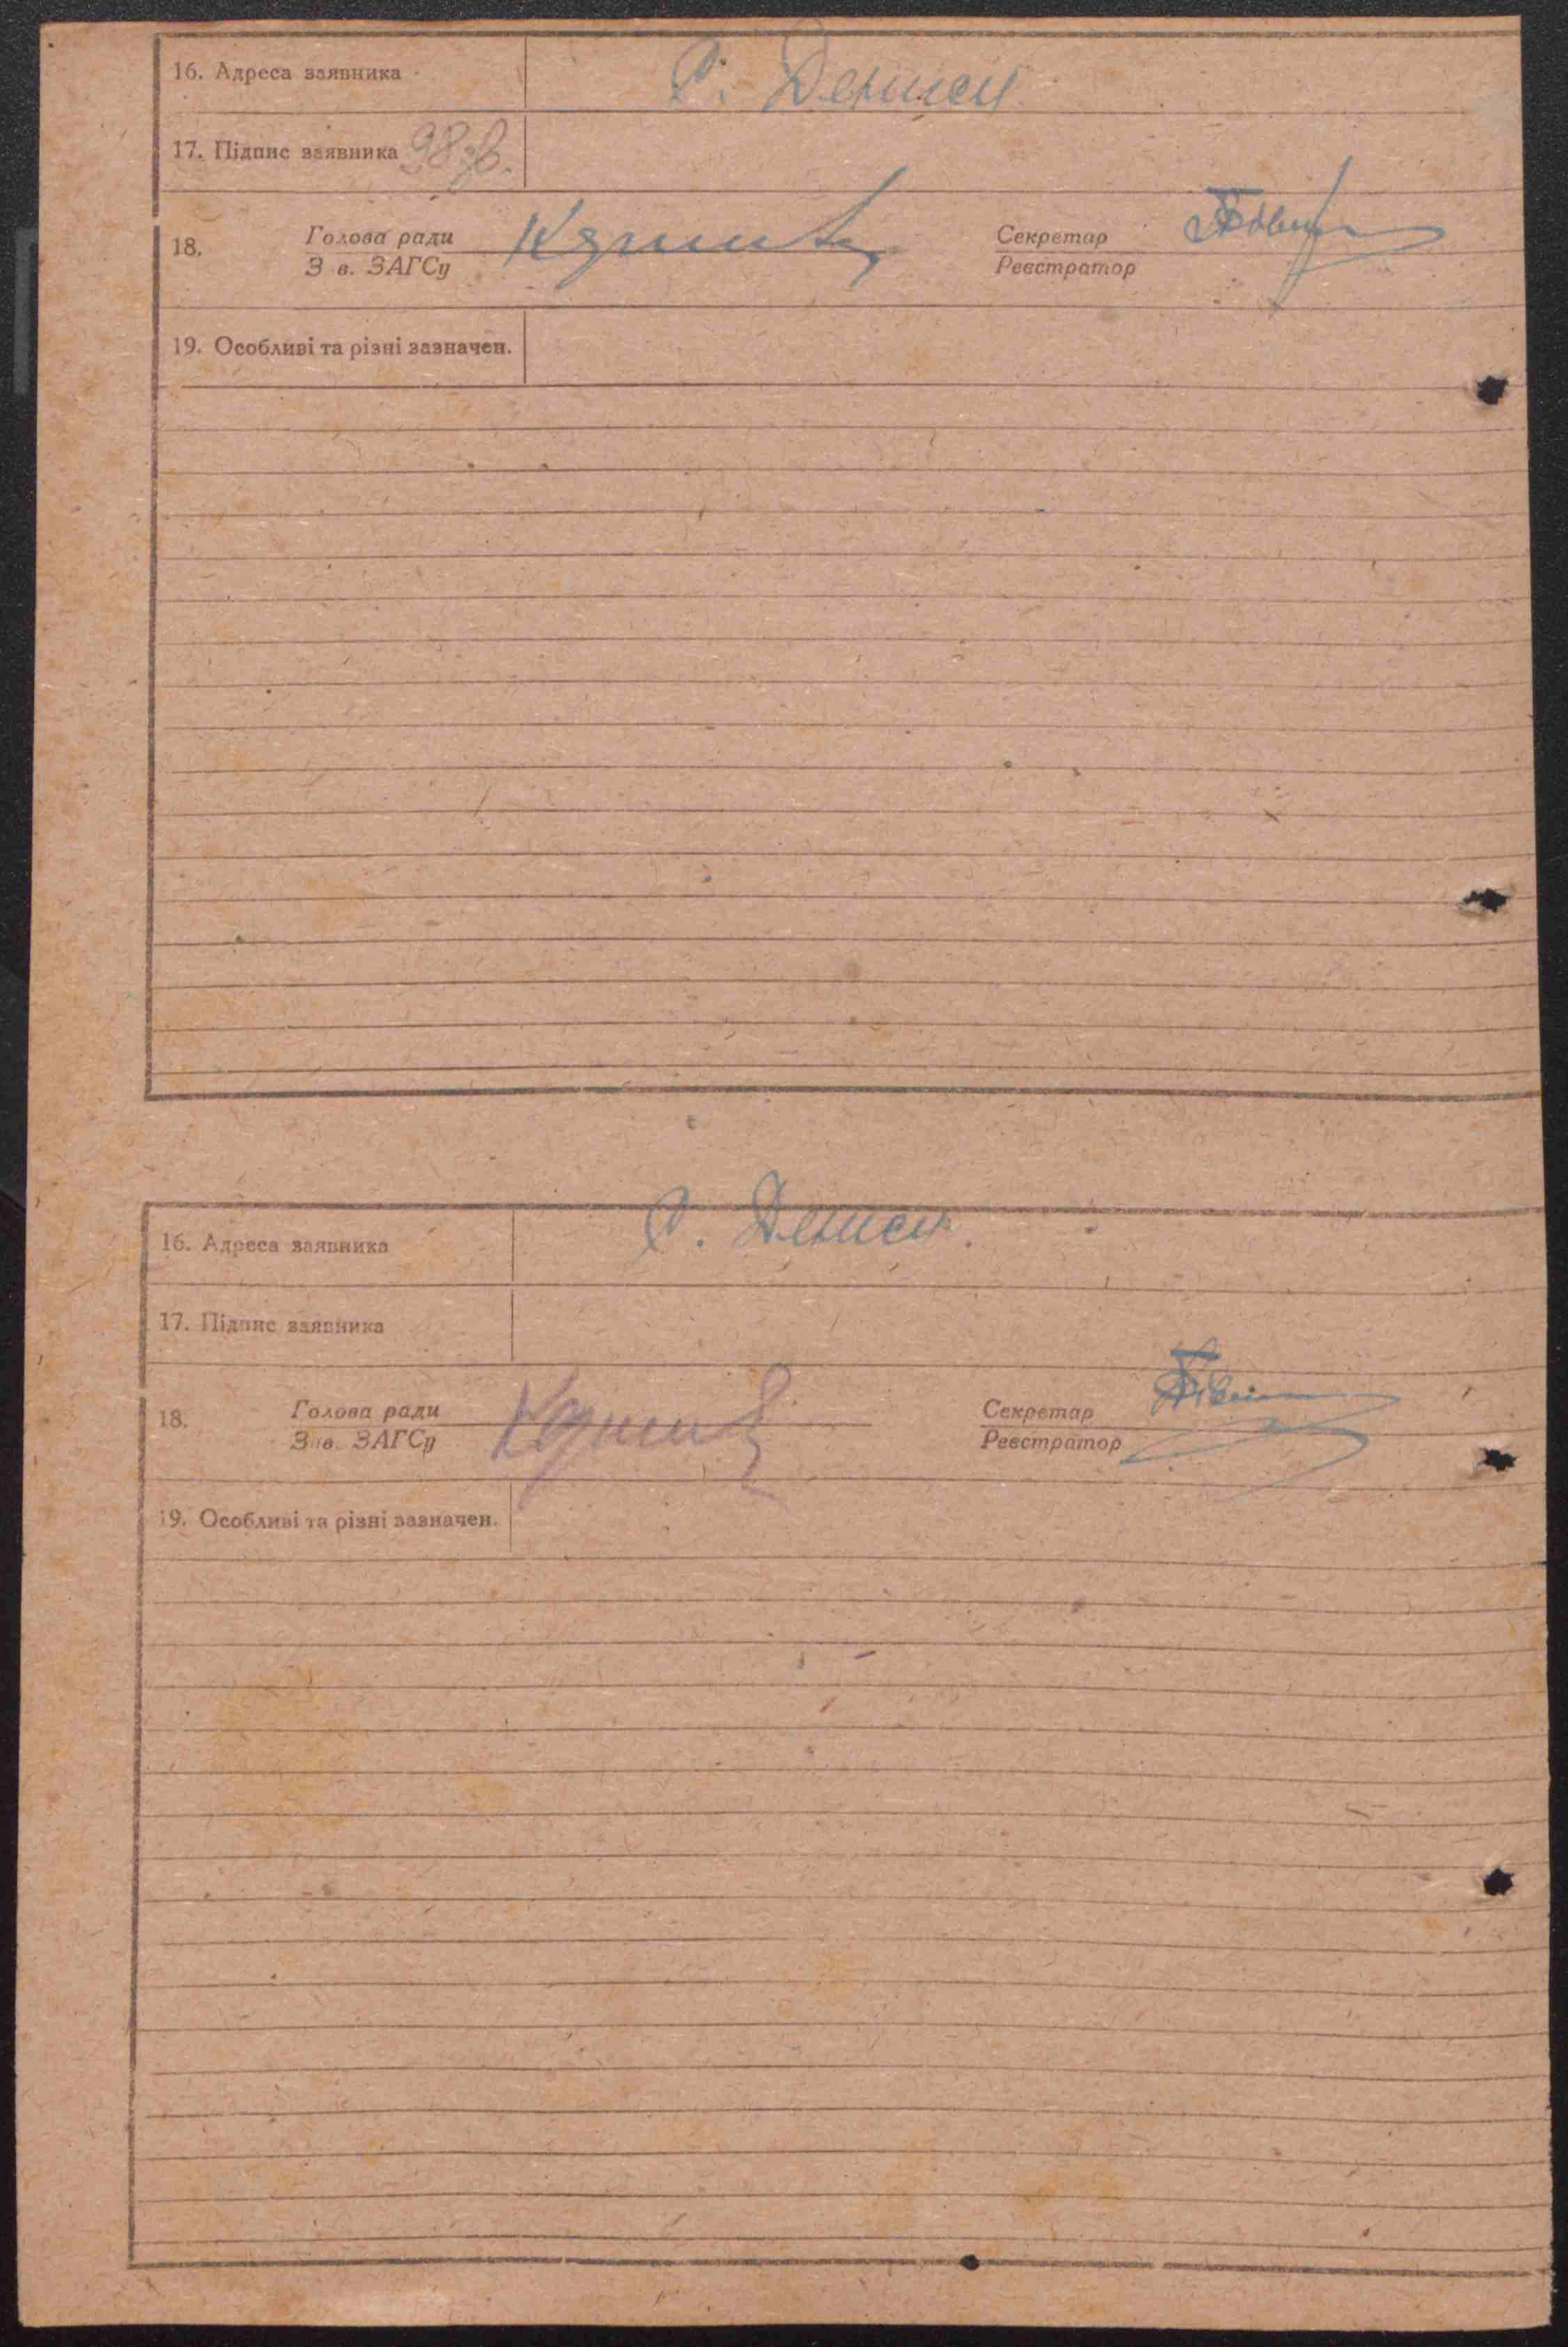 16. Адреса заявника С. Дениси
17. Підпис заявника 98 зв.
18. Голова ради Секретар
З в. ЗАГСу Реєстратор
19. Особливі та різні зазначен.
16. Адреса заявника С. Дениси.
17. Підпис заявника
18. Голова ради Секретар
З в. ЗАГСу Реєстратор
19. Особливі та різні зазначен.